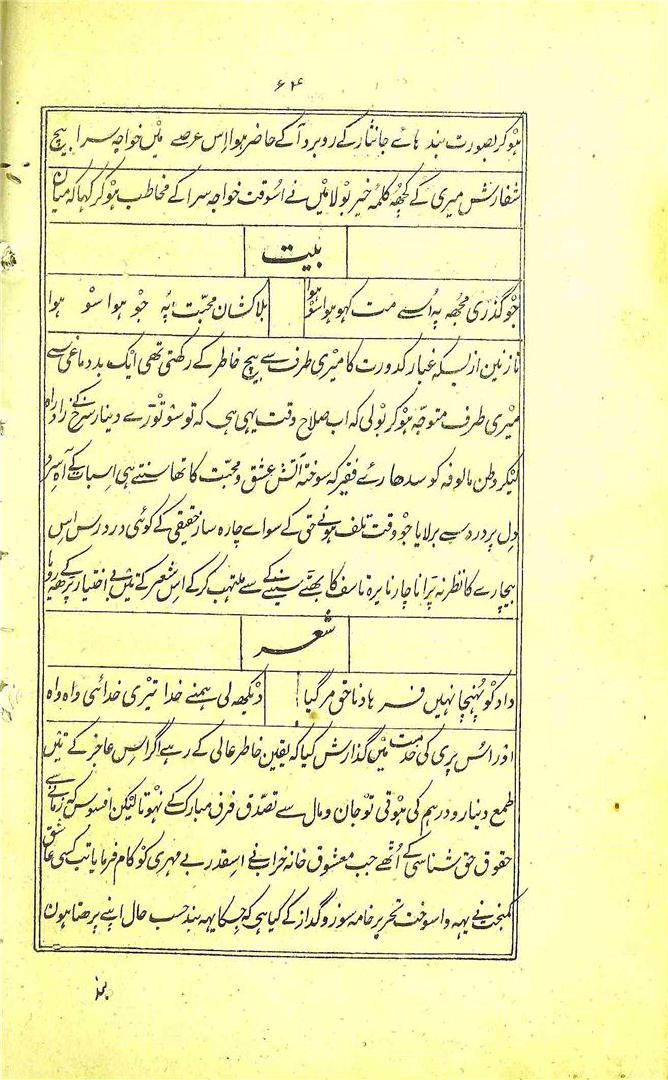 ۶۴
ہو کر بصورت بندہائے جانثار کے روبرو آ کے حاضر ہوا اِس عرصے میں خواجہ سرا بیچ
شفارش میری کے کچھہ کلمہ خیر بولا میں نے اُسوقت خواجہ سرا کے مخاطب ہو کر کہا کہ میاں
بیت
جو گذری مجھہ پہ اُسے مت کہو ہوا سو ہوا بلاکشان محبّت پہ جو ہوا سو ہوا
نازنین ازبسکہ غبار کدورت کا میری طرف سے بیچ خاطر کے رکھتی تھی ایک بددماغی سے
میری طرف متوجّہ ہو کر بولی کہ اب صلاح وقت یہی ہی کہ تو سو توڑے دینار سُرخ کے زاد راہ
لیکر وطن مالوفہ کو سدھارے فقیر کہ سوختہ آتش عشق و محبت کا تھا سنتے ہی اِسبات کے آہ سرد
دِل پر درد سے برلایا جو وقت تلف ہونے حق کے سواے چارہ ساز حقیقی کے کوئی دردرس اِس
بیچارے کا نظر نہ پڑا ناچار نایرہ تاسف کا بھٹّے سینے کے سے ملتہب کر کے اِس شعر کے تئیں بے اختیار پڑھہ رویا
شعر
داد کو پُہنچا نہیں فرہاد ناحق مر گیا دیکھہ لی ہمنے خدا تیری خدائی واہ واہ
اور اُس پری کی خدمت میں گذارش کیا کہ یقین خاطر عالی کے رہے اگر اِس عاجز کے تئیں
طمع دینار و درہم کی ہوتی تو جان و مال سے تصدّق فرق مبارک کے نہوتا لیکن افسوس کہ زمانے سے
حقوق حق شناسی کے اُٹھے جب معشوق خانہ خراب نے اِسقدر بے مہری کو کام فرمایا تب کسی عاشق
کمبخت نے یہہ واسوخت تحریر خامہ سوز و گداز کے کیا ہی کہ جسکا یہہ بند حسب حال اپنے پڑھتا ہون
بند